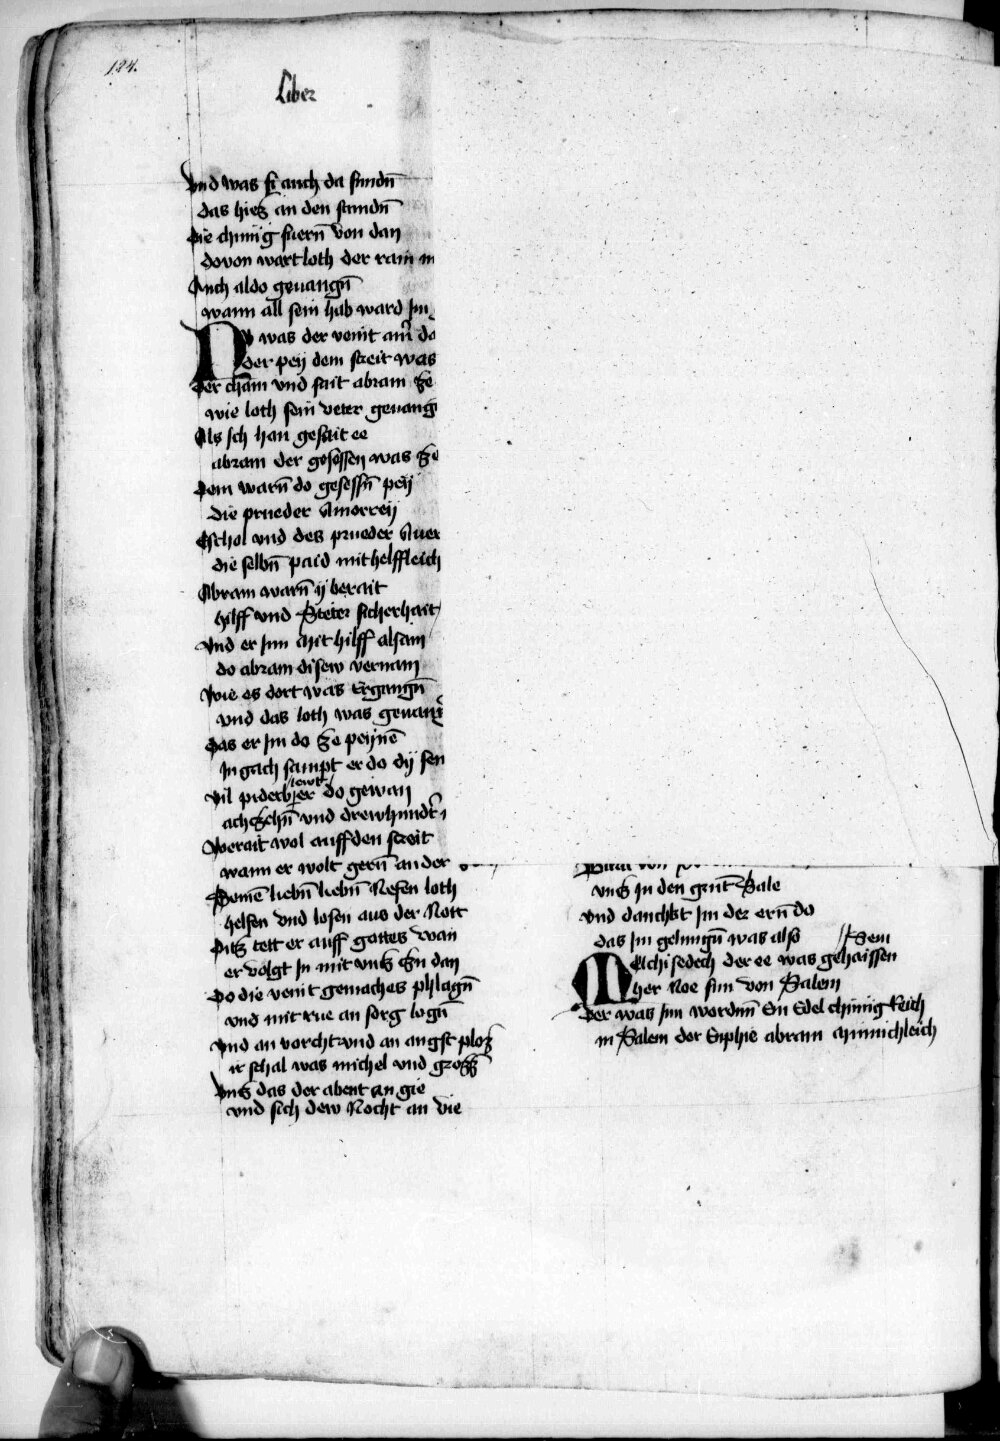 124.
Liber
Vnd was si auch da fundn̄
das hiez an den stundn̄
Die chunig fuern̄ von dan
dovon wart loth der rain m
Auch aldo gevangn̄
wann all sein hab ward Im
NV was der veint ain̄ do
der pey dem streit was
Der cham vnd sait abram ze
wie loth sein veter gevang
Als ich han gesait ee
abram der gesessen was ze
Dem warn̄ do gesessn̄ pey
die prueder Amorrey
Eschol vnd des prueder Auer
die selbn̄ paid mit helffleich
Abram warn̄ y berait
hilff vnd Steter sicherhait
Vnd er Inn mit hilff alsam
do abram disew vernam
Wie es dort was Ergangn̄
vnd das loth was gevan
Das er Im do ze peynē
In gach sampt er do dy sen
Vil piderber lewt do gewan
achzehn̄ vnd drewhundt
Berait wol auff den streit
wann er wolt gern̄ an der
Seinē liebn̄ liebn̄ Nefen loth
helfen vnd losen aus der Nott
Ditz tett er auff gottes wan
er volgt In mit vntz Czu dan
Do die veint gemaches phlagn̄
vnd mit rue an sorg lagn̄
Vnd an vorcht vnd an angst ploz
ir schal was michel vnd grozz
Vntz das der abent an gie
vnd sich dew Nocht an vie
vntz In den grūt Sale
Vnd danchkt Im der ern̄ do
das Im gelungn̄ was also // Sem
Melchisedech der ee was gehaissen
her Noe sun von Salem
Der was Inn wordnn̄ Ein Edel chunig Reich
in Salem der Enphie abram minnichleich